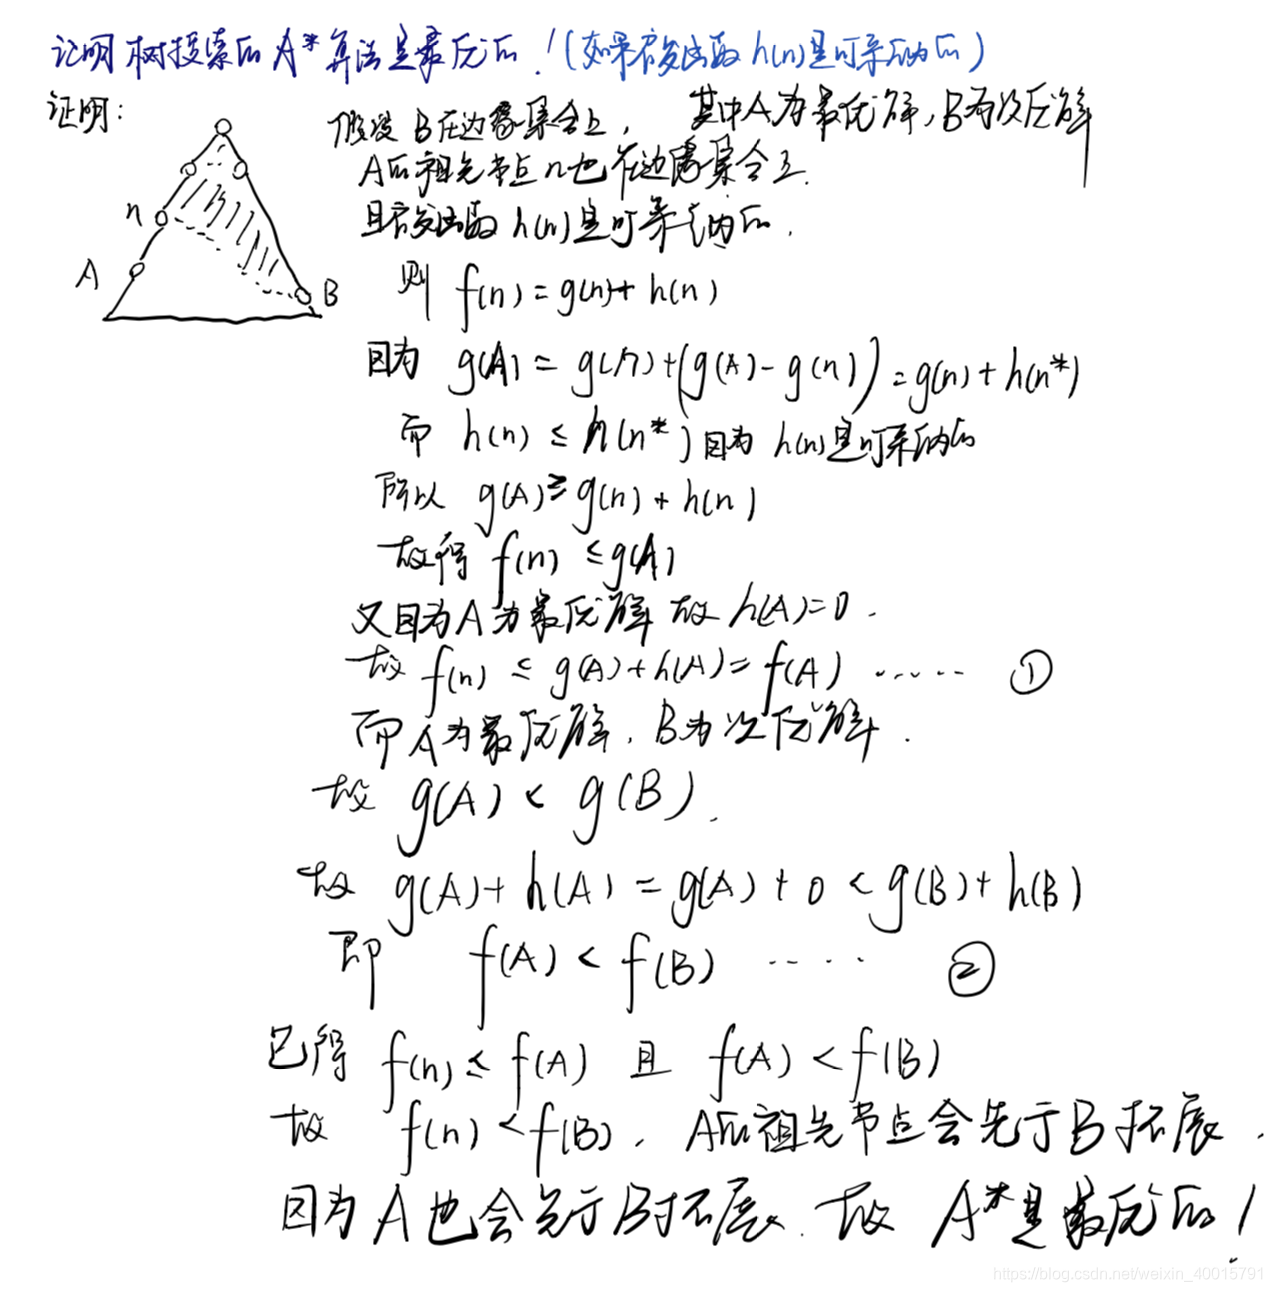 证明 树搜索的 A* 算法是最优的！(如果启发函数 h(n)是可采纳的)
证明：
假设 B在边缘集合上， 其中A为最优解，B为次优解
A的祖先节点 n也在边缘集合上.
且启发函数 h(n)是可采纳的.
n
A
B
则 f(n)=g(n)+h(n)
因为 g(A) = g(n)+(g(A)-g(n))=g(n)+h(n*)
而 h(n) ≤ h(n*) 因为 h(n)是可采纳的
所以 g(A)≥g(n)+h(n)
故得 f(n) ≤g(A)
又因为A为最优解 故 h(A)=0.
故 f(n) ≤ g(A)+h(A)=f(A) ...... ①
而A为最优解. B为次优解.
故 g(A) < g(B).
故 g(A)+h(A)=g(A)+0<g(B)+h(B)
即 f(A) < f(B) ..... ②
已得 f(n)≤f(A) 且 f(A)<f(B)
故 f(n)<f(B). A的祖先节点会先于B拓展.
因为A也会先于B拓展. 故 A*是最优的！
https://blog.csdn.net/weixin_40015791